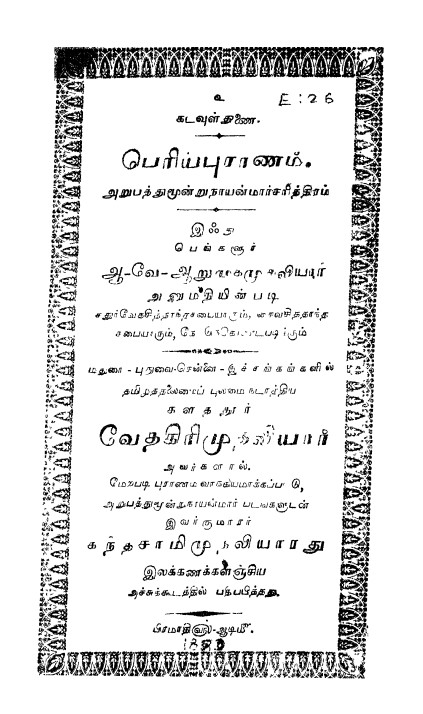 உ
E:26
கடவுள் துணை.
பெரியபுராணம்.
அறுபத்துமூன்றுநாயன்மார்சரித்திரம்
இஃது
பெங்களூர்
ஆ-வே-ஆறுமுகமுதலியார்
அனுமதியின்படி
மதுரை-புதுவை-சென்னை-இச்சங்கங்களில்
தமிழ்த்தலைமைப் புலமை நடாத்திய
களத்தூர்
வேதகிரிமுதலியார்
அவர்களால்.
மேற்படி புராணம் வாக்கியமாக்கப்பட்டு,
அறுபத்துமூன்றுநாயன்மார் படங்களுடன்
இவர்குமாரர்
கந்தசாமிமுதலியாரது
இலக்கணக்களஞ்சிய
அச்சுக்கூடத்தில் பதிப்பித்தது.
பிரமாதிவரு-ஆடிமீ.